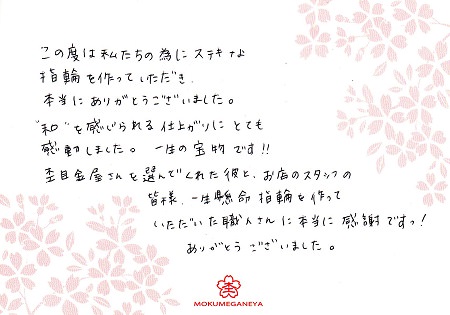 この度は私たちの為にステキな
指輪を作っていただき
本当にありがとうございました。
"和"を感じられる仕上がりにとても
感動しました。 一生の宝物です!!
杢目金屋さんを選んでくれた彼と、お店のスタッフの
皆様、一生懸命 指輪を作って
いただいた職人さんに本当に感謝ですっ!
ありがとうございました。
杢
MOKUMEGANEYA